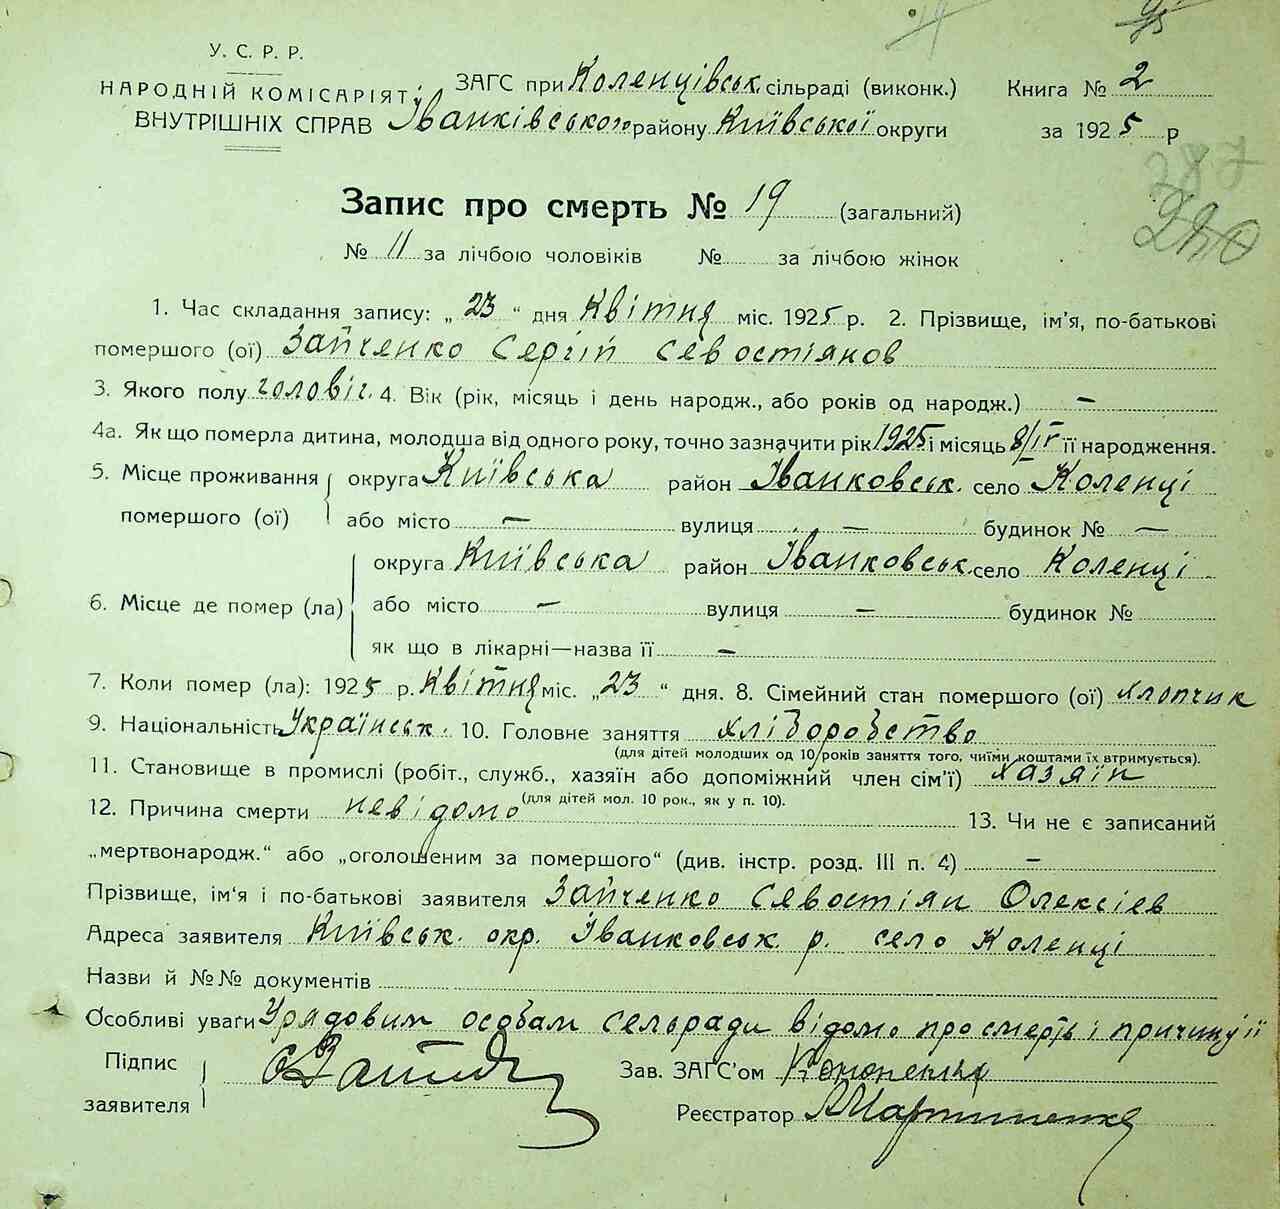 У. С. Р. Р.
НАРОДНІЙ КОМІСАРІЯТ
ВНУТРІШНІХ СПРАВ
ЗАГС при Коленцівськ. сільраді (виконк.)
Іванківського району Київської округи
Книга № 2
за 1925 р
287
Запис про смерть № 19 (загальний)
№ 11 за лічбою чоловіків № за лічбою жінок
1. Час складання запису: „ 23 “ дня Квітня міс. 1925 р. 2. Прізвище, ім’я, по-батькові
помершого (ої) Зайченко Сергій Севостіянов
3. Якого полу чоловіч. 4. Вік (рік, місяць і день народж., або років од народж.) —
4а. Як що померла дитина, молодша від одного року, точно зазначити рік 1925 і місяць 8/IV її народження.
5. Місце проживання округа Київська район Іванковськ. село Коленці
помершого (ої) або місто — вулиця — будинок № —
округа Київська район Іванковськ. село Коленці
6. Місце де помер (ла) або місто — вулиця — будинок №
як що в лікарні—назва її —
7. Коли помер (ла): 1925 р. Квітня міс. „23 “ дня. 8. Сімейний стан помершого (ої) хлопчик
9. Національність Українськ. 10. Головне заняття хліборобство
(для дітей молодших од 10 років заняття того, чиїми коштами їх втримується).
11. Становище в промислі (робіт., служб., хазяїн або допоміжний член сім’ї) хазяїн
(для дітей мол. 10 рок., як у п. 10).
12. Причина смерти невідомо 13. Чи не є записаний
„мертвонародж.“ або „оголошеним за помершого“ (див. інстр. розд. III п. 4) —
Прізвище, ім‘я і по-батькові заявителя Зайченко Севостіян Олексієв
Адреса заявителя Київськ. окр. Іванковськ. р. село Коленці
Назви й №№ документів
Особливі уваги Урядовим особам сельради відомо про смерть і причину її
Підпис
заявителя
Зав. ЗАГС’ом Кононенко
Реєстратор Мартиненко